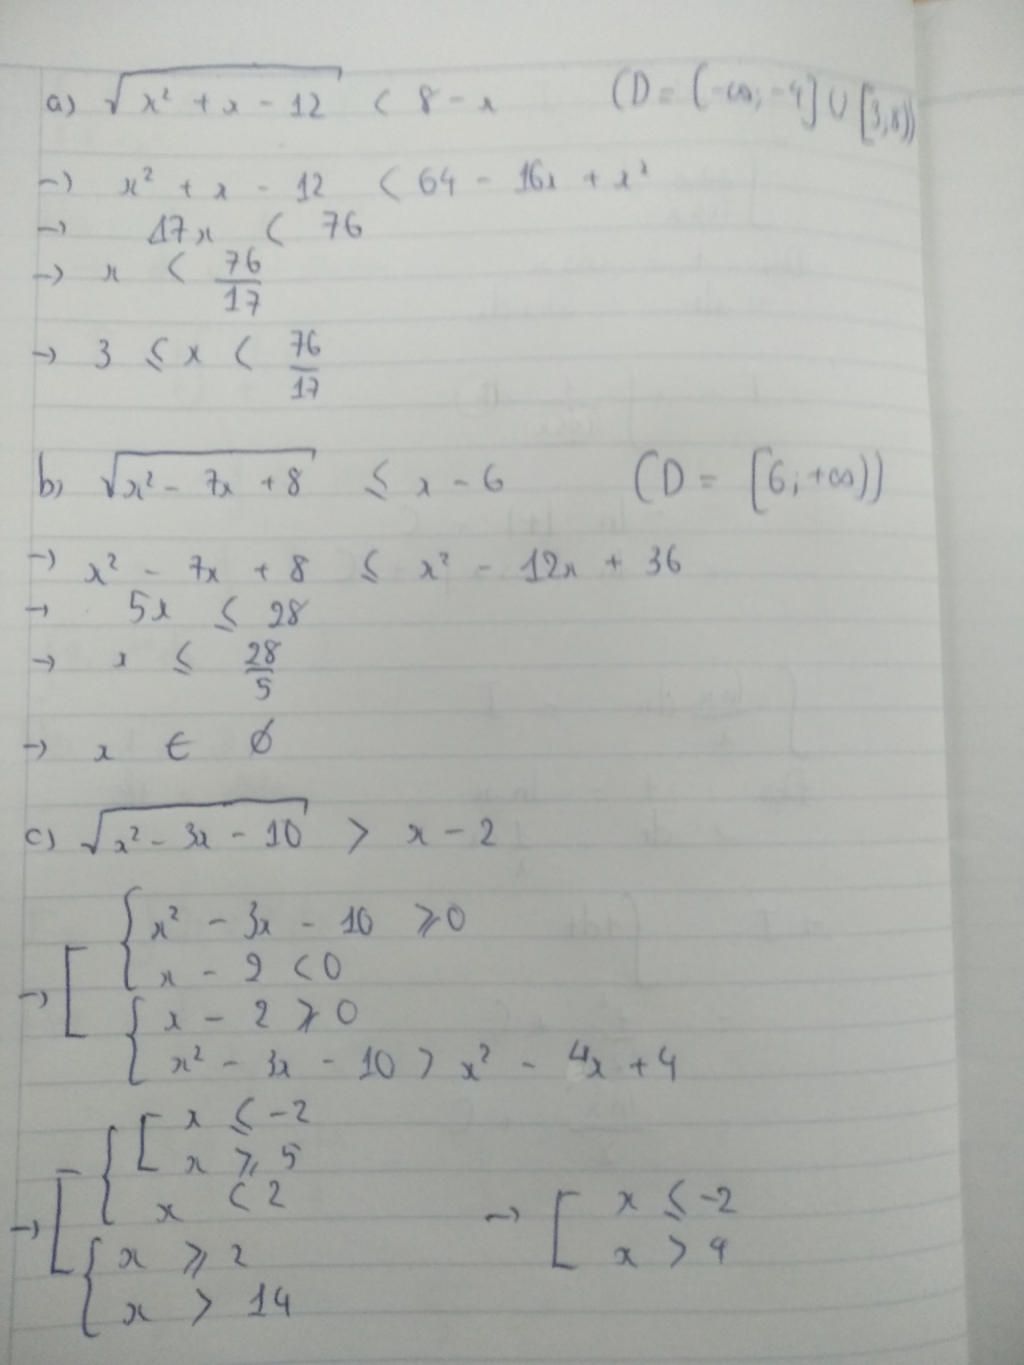 a) √(x² + x - 12) < 8 - x (D = (-∞; -4] ∪ [3; 8))
→ x² + x - 12 < 64 - 16x + x²
→ 17x < 76
→ x < 76/17
→ 3 ≤ x < 76/17
b) √(x² - 7x + 8) ≤ x - 6 (D = [6; +∞))
→ x² - 7x + 8 ≤ x² - 12x + 36
→ 5x ≤ 28
→ x ≤ 28/5
→ x ∈ ∅
c) √(x² - 3x - 10) > x - 2
x² - 3x - 10 ≥ 0
→ [ { x - 2 < 0
{ x - 2 ≥ 0
x² - 3x - 10 > x² - 4x + 4
[ x ≤ -2
x ≥ 5
x < 2 → [ x ≤ -2
→ [ { x ≥ 2 x > 4
x > 14